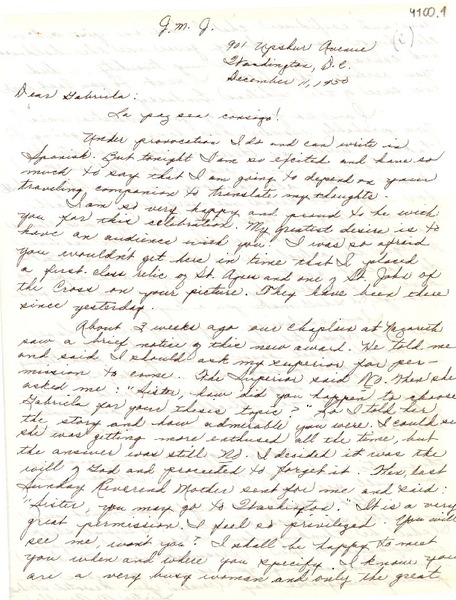 4100.1
J. M. J. (c)
901 Upshur Avenue
Washington, D.C.
December 11, 1950
Dear Gabriela:
La paz sea consigo!
Under provocation I do and can write in
Spanish. But tonight I am so excited and have so
much to say that I am going to depend on your
traveling companion to translate my thoughts.
I am so very happy and proud to be with
you for this celebration. My greatest desire is to
have an audience with you. I was so afraid
you wouldn't get here in time that I placed
a first-class relic of St. Agnes and one of St. John of
the Cross on your picture. They have been there
since yesterday.
About 3 weeks ago our chaplain at Nazareth
saw a brief notice of this new award. He told me
and said I should ask my superior for per-
mission to come. The Superior said No. Then she
asked me: "Sister, how did you happen to choose
Gabriela for your thesis topic?" So I told her
the story and how admirable you were. I could see
she was getting more enthused all the time, but
the answer was still No. I decided it was the
will of God and proceeded to forget it. This last
Sunday Reverend Mother sent for me and said:
"Sister, you may go to Washington." It is a very
great permission. I feel so privileged. You will
see me won't you? I shall be happy to meet
you when and where you specify. I know you
are a very busy woman and only the great